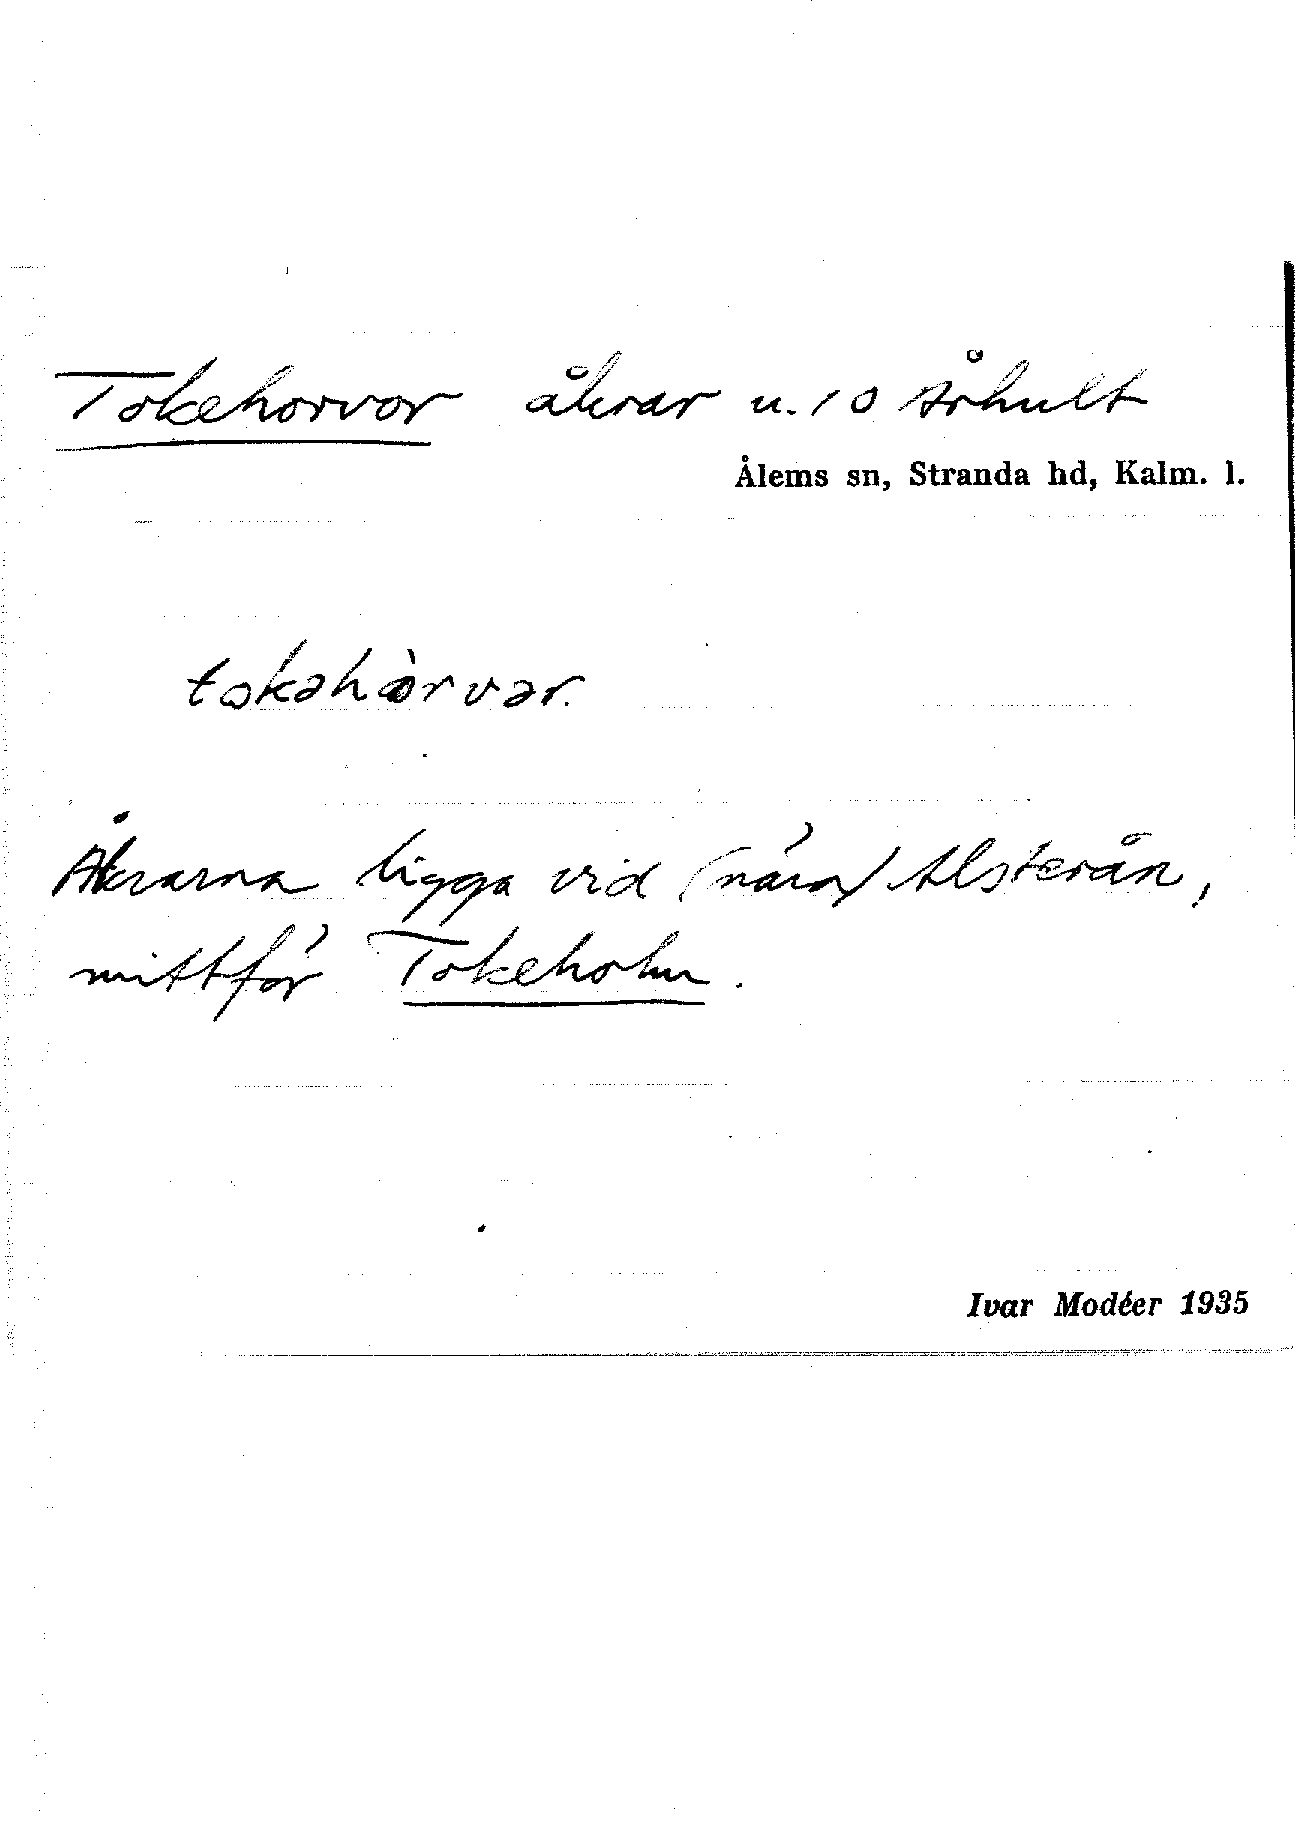 Tokehorvor åkrar u. 10 Århult
Ålems sn, Stranda hd, Kalm. l.
tokəhòrvər.
Åkrarna ligga vid (nära) Alsterån,
mittför Tokeholm.
Ivar Modéer 1935